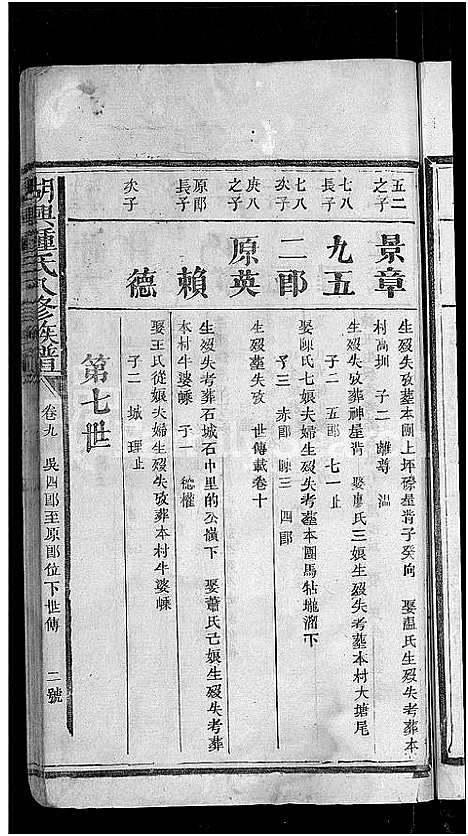 五二之子
景章
生歿失攷葬本團上坪磜星背子癸向 娶藍氏生歿失考葬本
村高圳 子二 離尊 溫
七八長子
九五
生歿失攷葬神星背 娶廖氏三娘生歿失考葬本村大塘尾
子二 五郎 七一 止
七八次子
二郎
娶陳氏七娘夫婦生歿失考墓本團馬牯壠溜下
子三 赤郎 陳三 四郎
庚八之子
原英
生歿墓失攷 世傳載卷十
原郎長子
賴
生歿失考葬石城石中里的公嶺下 娶蕭氏己娘生歿失考葬
本村牛婆嵊 子一 德權
次子
德
娶王氏從娘夫婦生歿失攷葬本村牛婆嵊
子二 城 理 止
第七世
鍾氏八修族譜
卷九 吳四郎至原郎位下世傳 二號